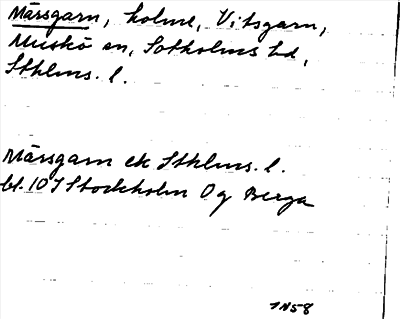 Märsgarn, holme, Vitsgarn,
Muskö sn, Sotholms hd,
Sthlms. l.
Märsgarn ek Sthlms. l.
bl. 10 I Stockholm O g Berga
1N58